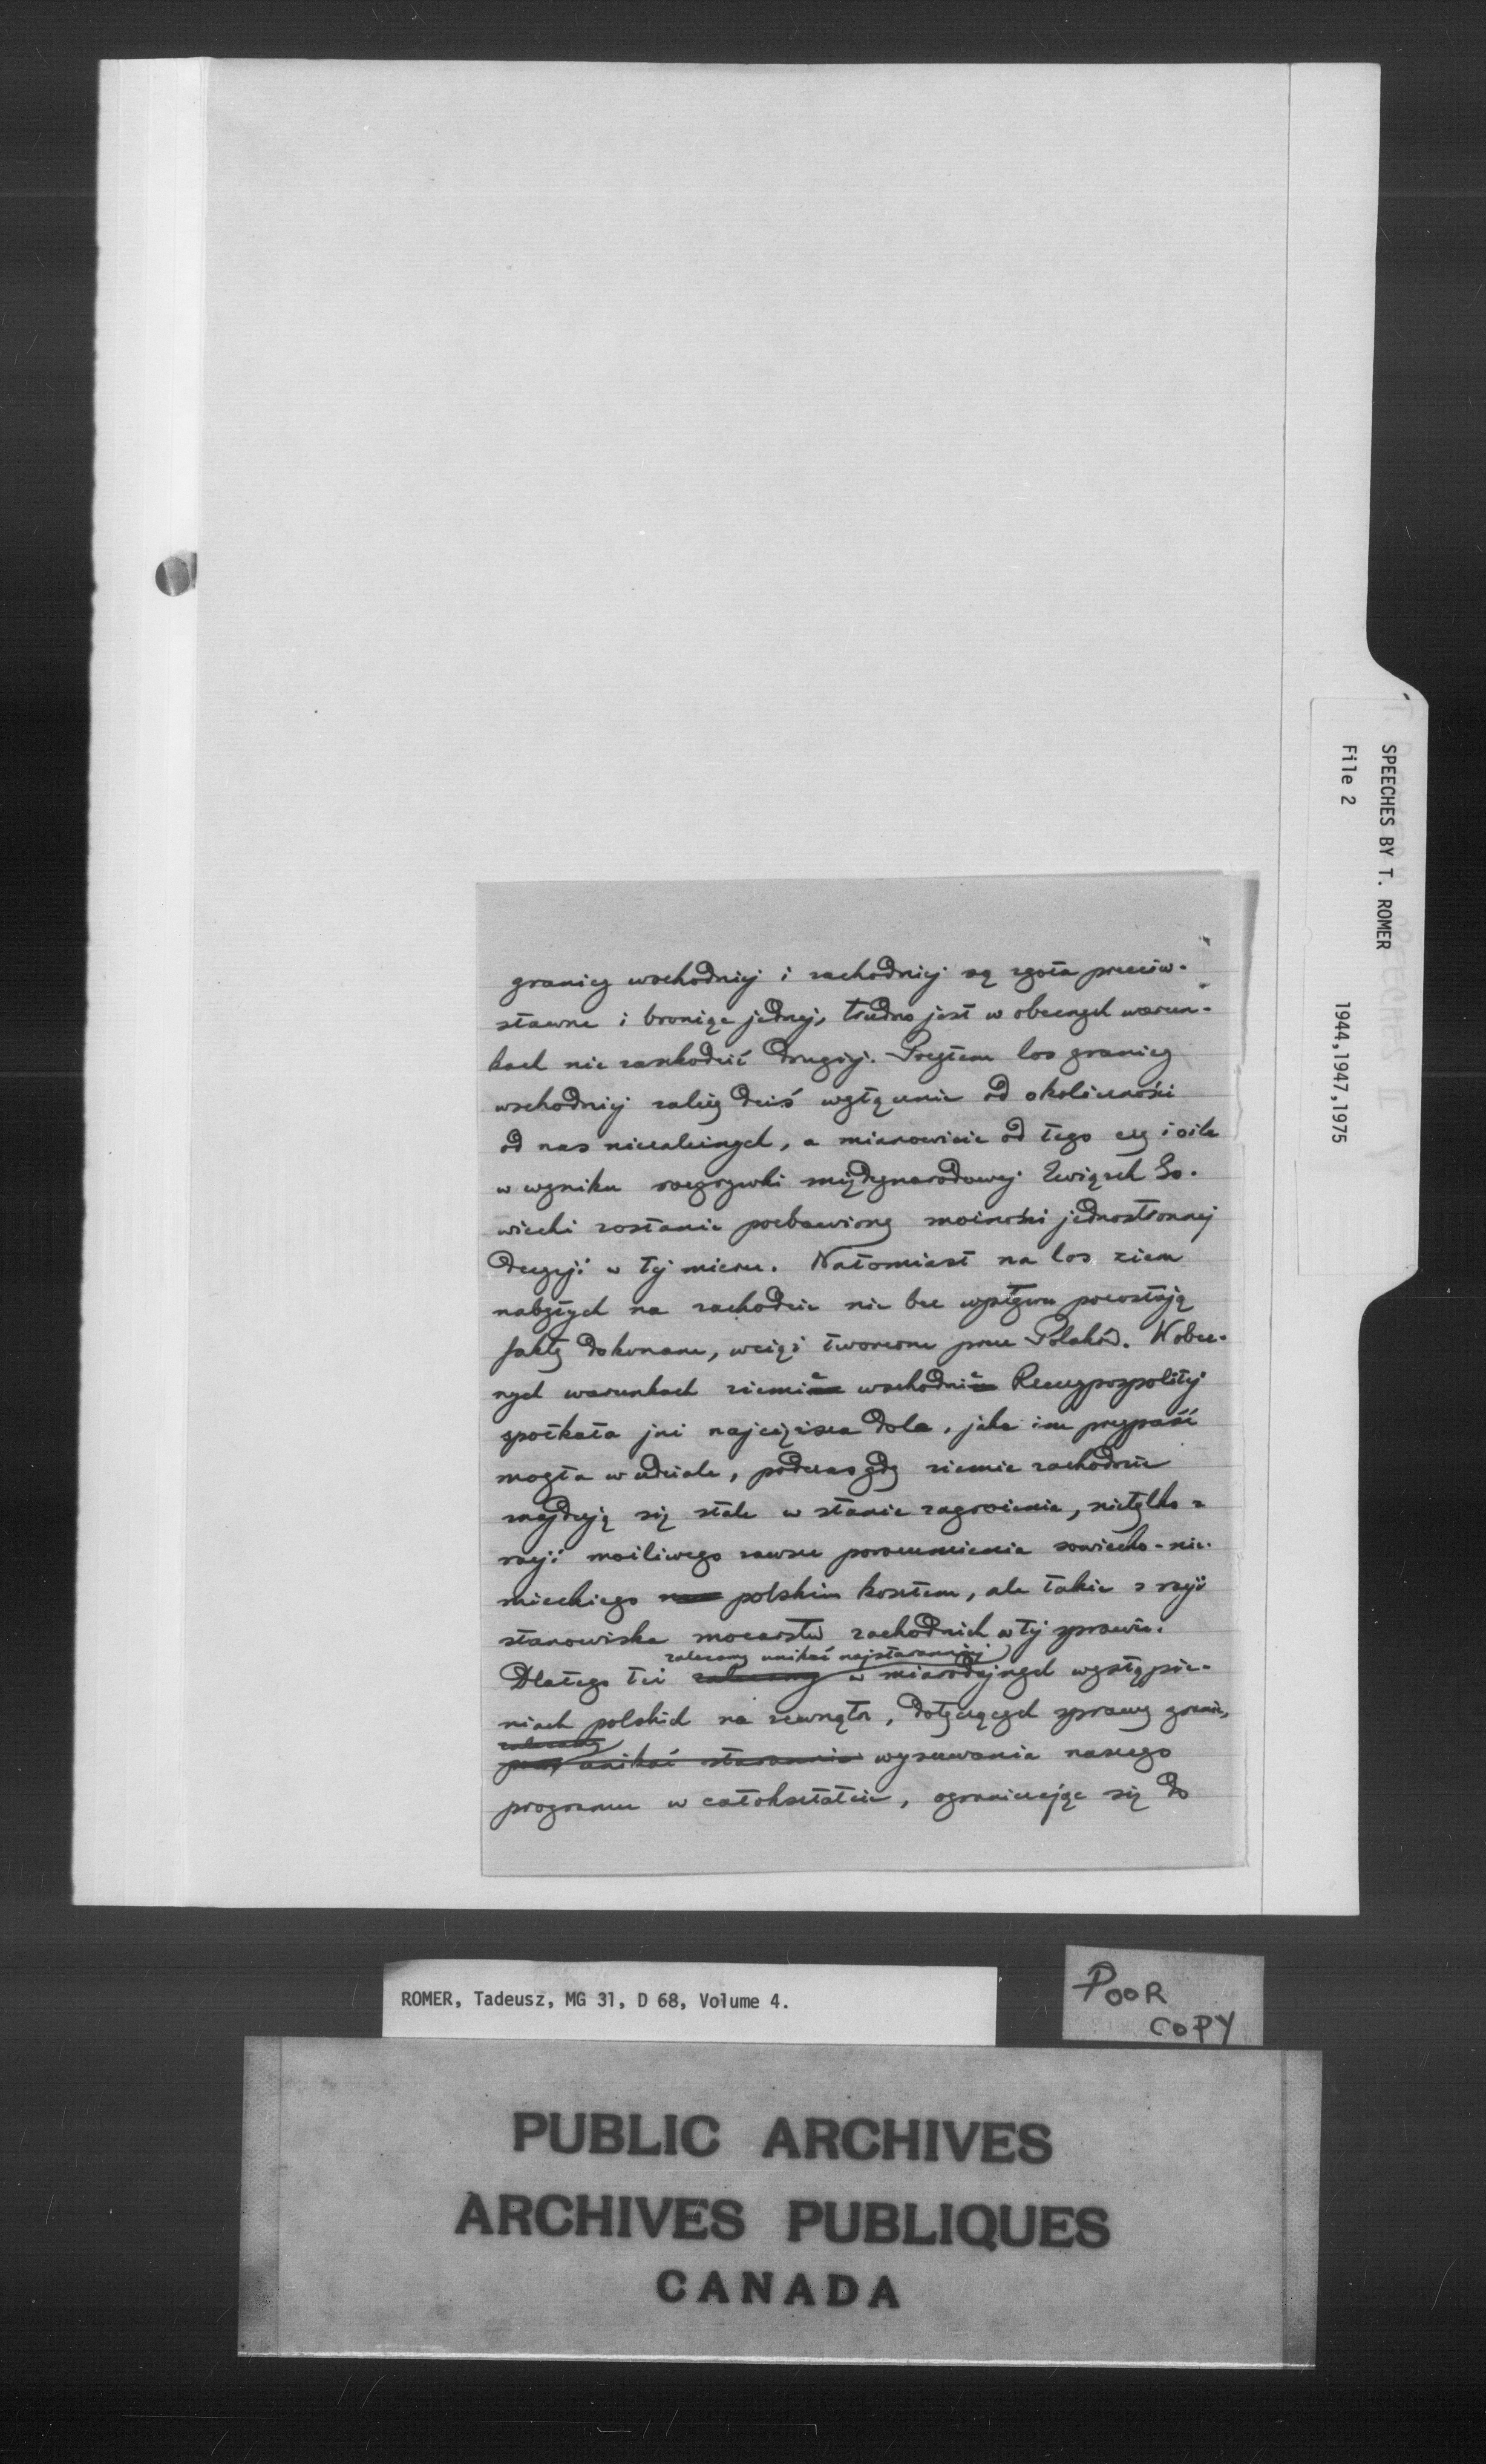 SPEECHES BY T. ROMER
File 2
1944,1947,1975
granicy wschodniej i zachodniej są zgoła przeciw-
stawne i broniąc jednej, trudno jest w obecnych warun-
kach nie zaszkodzić drugiej. Przytem los granicy
wschodniej zależy dziś wyłącznie od okoliczności
od nas niezależnych, a mianowicie od tego czy i o ile
w wyniku rozgrywki międzynarodowej Związek So-
wiecki zostanie pozbawiony możności jednostronnej
decyzji w tej mierze. Natomiast na los ziem
nabytych na zachodzie nie bez wpływu pozostają
fakty dokonane, wciąż tworzone przez Polaków. W obec-
nych warunkach ziemie wschodnie Rzeczypospolitej
spotkała już najcięższa dola, jaka im przypaść
mogła w udziale, podczas gdy ziemie zachodnie
znajdują się stale w stanie zagrożenia, nietylko z
racji możliwego zawsze porozumienia sowiecko-nie-
mieckiego polskim kosztem, ale także z racji
stanowiska mocarstw zachodnich w tej sprawie.
zalecamy unikać najstaranniej
Dlatego też zalecamy w miarodajnych wystąpie-
niach polskich na zewnątrz, dotyczących sprawy granic,
zalecamy
unikać starannie wysuwania naszego
programu w całokształcie, ograniczając się do
ROMER, Tadeusz, MG 31, D 68, Volume 4.
POOR
COPY
PUBLIC ARCHIVES
ARCHIVES PUBLIQUES
CANADA